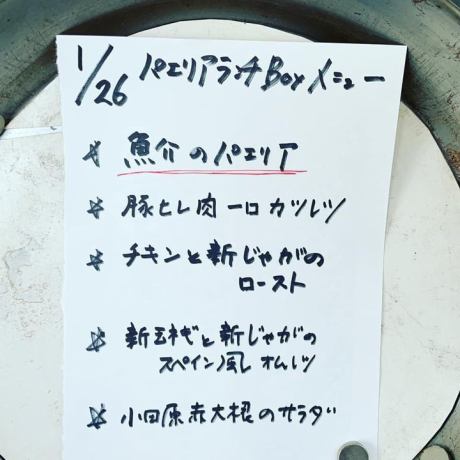 1/26 パエリアランチBoxメニュー
魚介のパエリア
豚ヒレ肉一口カツレツ
チキンと新じゃがの
ロースト
新玉ネギと新じゃがの
スペイン風オムレツ
小田原赤大根のサラダ